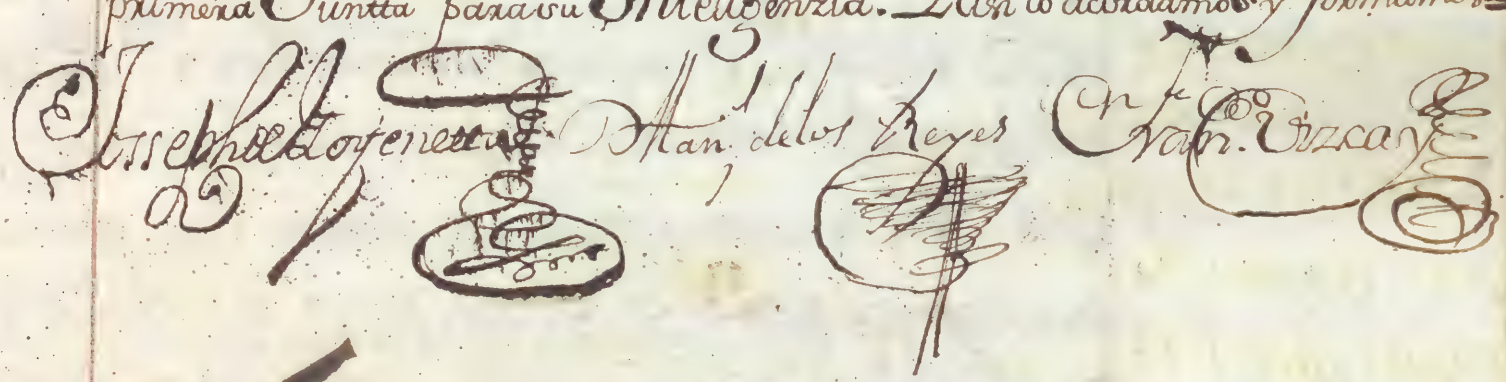 primera Juntta para su Intelig.enzia. Y asi lo acordamos y firmamos
Joseph de Goyenetta Man.l de los Reyes Fran.co Vizcay